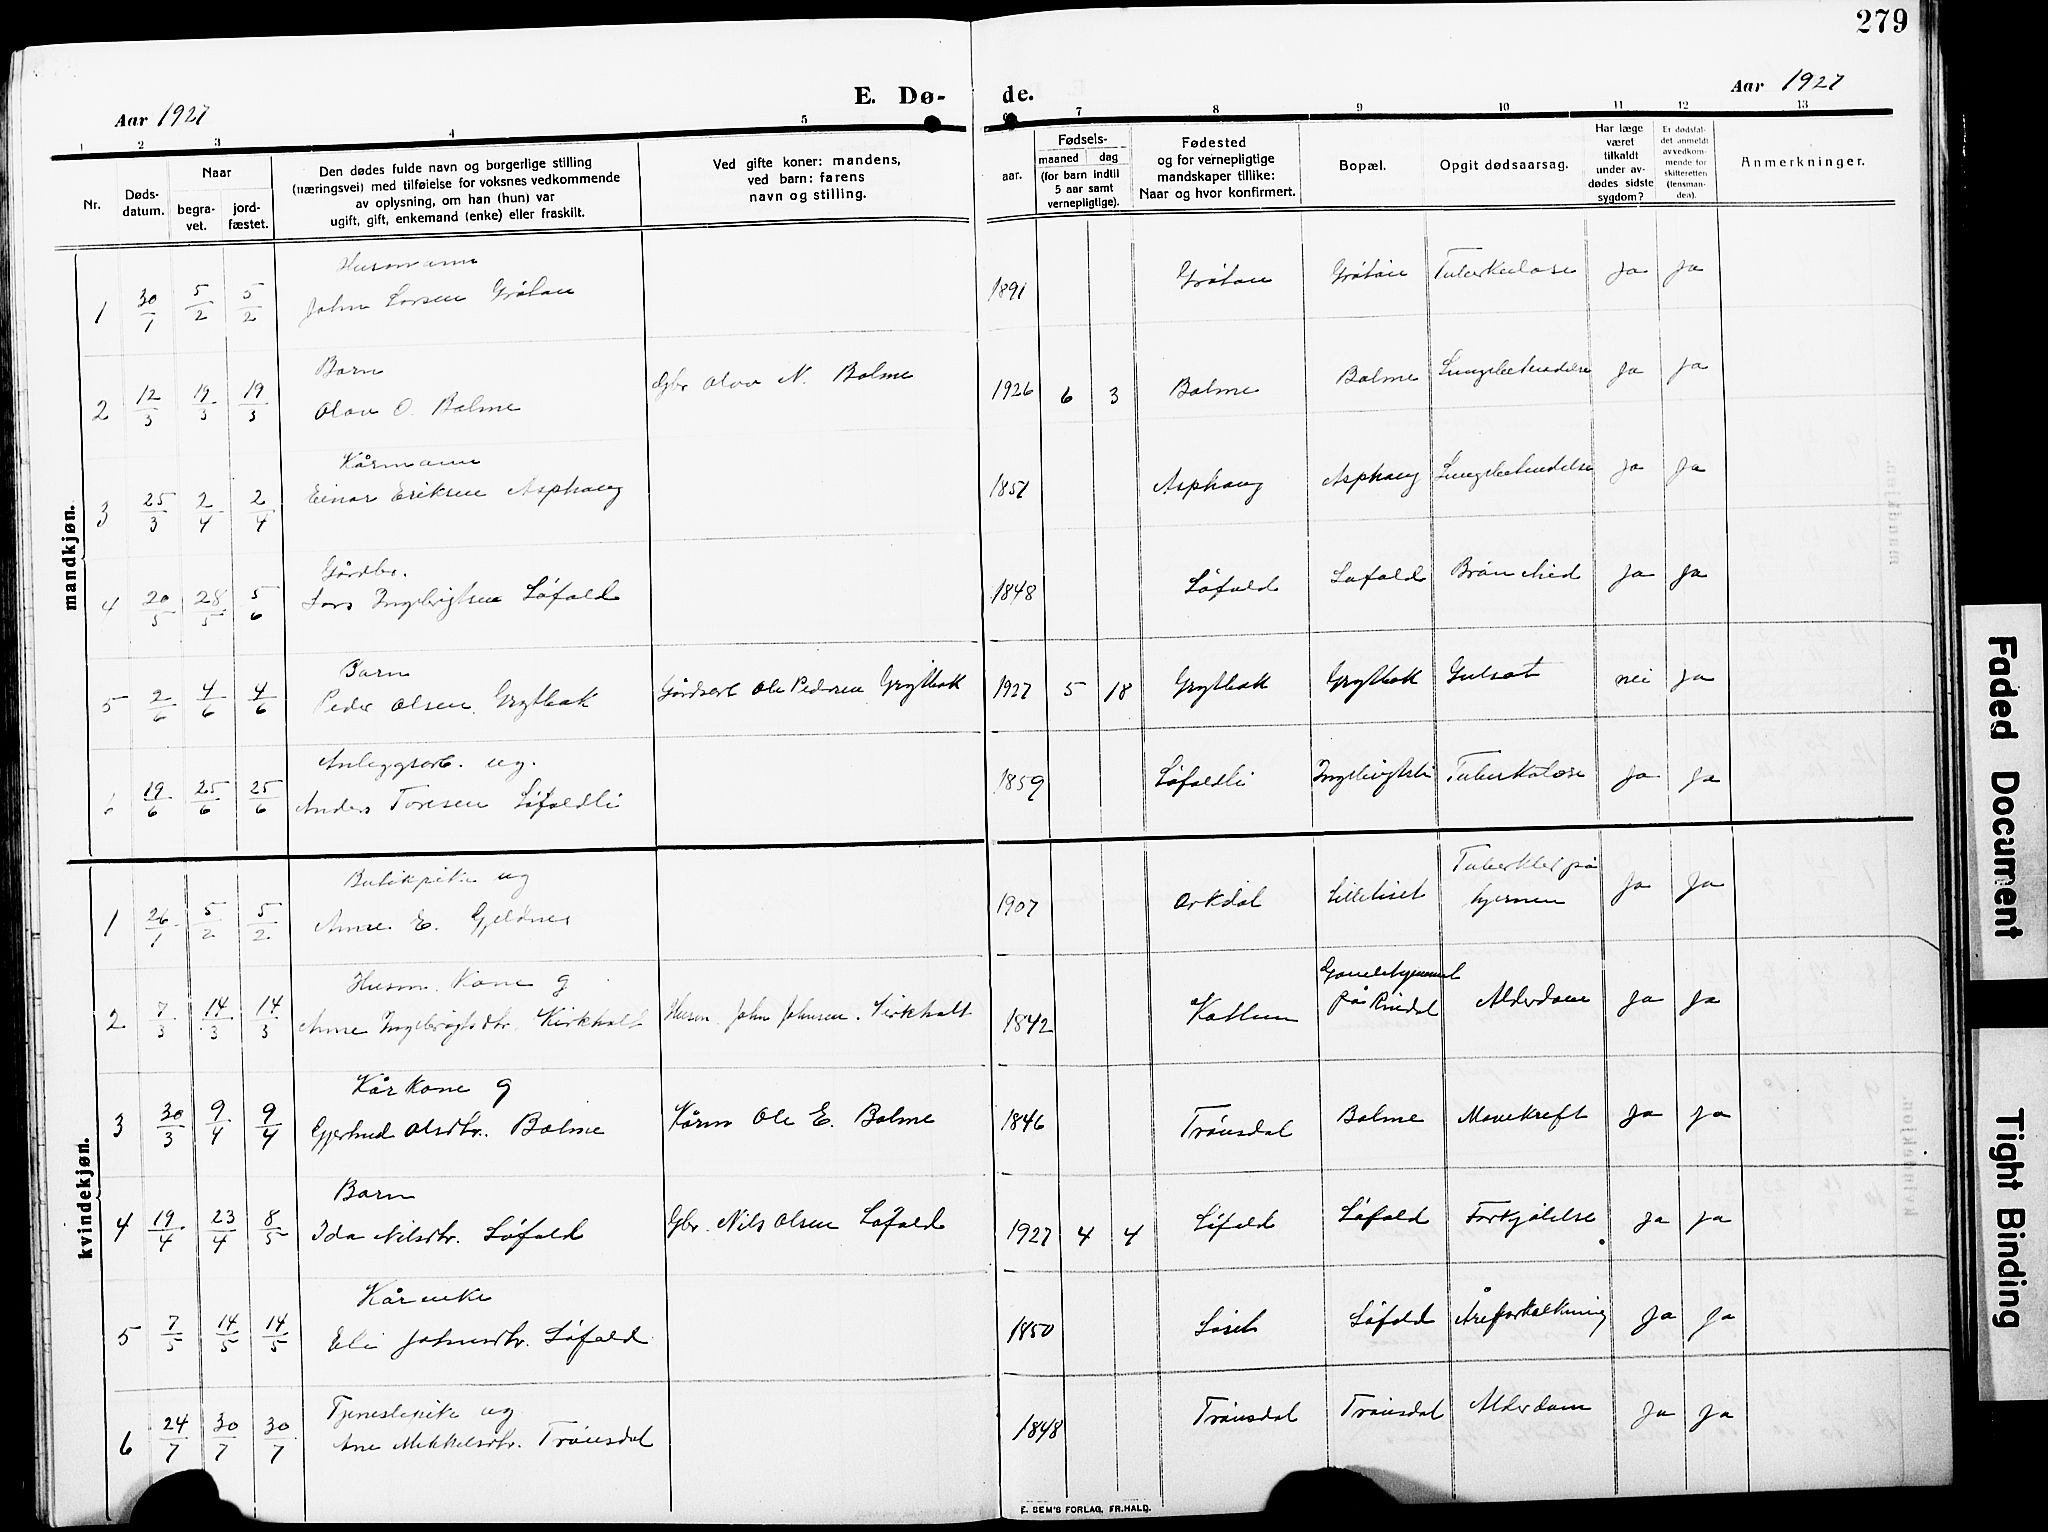 279
Aar 1927
E. Dø-
de.
Aar 1927
1 2 3 4 5 6 7 8 9 10 11 12 13
Nr.
Døds-
datum.
Naar
begra-
vet.
jord-
fæstet.
Den dødes fulde navn og borgerlige stilling
(næringsvei) med tilføielse for voksnes vedkommende
av oplysning, om han (hun) var
ugift, gift, enkemand (enke) eller fraskilt.
Ved gifte koner: mandens,
ved barn: farens
navn og stilling.
Fødsels-
aar.
maaned dag
(for barn indtil
5 aar samt
vernepligtige).
Fødested
og for vernepligtige
mandskaper tillike:
Naar og hvor konfirmert.
Bopæl.
Opgit dødsaarsag.
Har læge
været
tilkaldt
under av-
dødes sidste
sygdom?
Er dødsfal-
det anmeldt
av vedkom-
mende for
skifteretten
(lensman-
den).
Anmerkninger.
mandkjøn.
Husmann
1 30/1 5/2 5/2 John Larsen Gråtan 1891 Gråtan Gråtan Tuberkulose Ja Ja
Barn
2 12/3 19/3 19/3 Olav O. Bolme Gbr Olav N. Bolme 1926 6 3 Bolme Bolme Lungebetendelse Ja Ja
Kårmann
3 25/3 2/4 2/4 Einar Eriksen Asphaug 1851 Asphaug Asphaug Lungebetendelse Ja Ja
Gårdbr.
4 20/5 28/5 5/6 Lars Ingebrigtsen Løfald 1848 Løfald Løfald Ja Ja
Barn
5 2/6 4/6 4/6 Peder Olsen Grytbak Gårdsarb Ole Pedersen Grytbak 1927 5 18 Grytbak Grytbak Gulsot nei Ja
Anleggsarb. ug.
19/6 25/6 25/6 Anders Toresen Løfaldli 1859 Løfaldli Ingebrigtsli Tuberkulose Ja Ja
kvindekjøn.
Butikpike ug
1 26/1 5/2 5/2 Anne E. Gjeldnes 1907 Orkdal Lilleliset Tuberkler på
hjernen Ja Ja
Husm. Kone g
2 7/3 14/3 14/3 Anne Ingebrigtsdtr. Kirkholt Husm. John Johnsen Kirkholt 1842 Gamlehjemmet
på Rindal Alderdom Ja Ja
Kårkone g
3 30/3 9/4 9/4 Gjertrud Olsdtr. Bolme Kårm Ole E. Bolme 1846 Trønsdal Bolme Mavekreft Ja Ja
Barn
4 19/4 23/4 8/5 Ida Nilsdtr. Løfald Gbr. Nils Olsen Løfald 1927 4 4 Løfald Løfald Forkjølelse Ja Ja
Kårenke
5 7/5 14/5 14/5 Eli Johnsdtr. Løfald 1850 Løset Løfald Åreforkalkning Ja Ja
Tjenestepike ug
6 24/7 30/7 30/7 Ane Mikkelsdtr. Trønsdal 1848 Trønsdal Trønsdal Alderdom Ja Ja
E. SEM'S FORLAG, FR.HALD.
Faded Document
Tight Binding